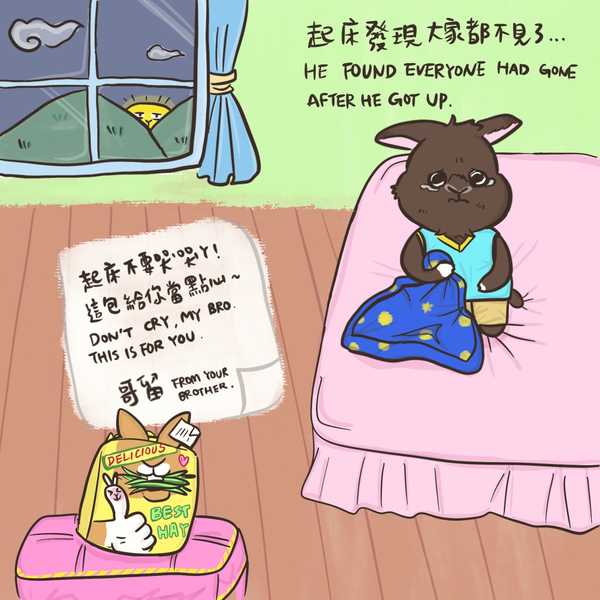 起床發現大家都不見了...
HE FOUND EVERYONE HAD GONE
AFTER HE GOT UP.
起床不要哭哭ㄚ!
這包給你當點心~
DON'T CRY, MY BRO.
THIS IS FOR YOU.
哥留 FROM YOUR
BROTHER.
DELICIOUS
BEST
HAY